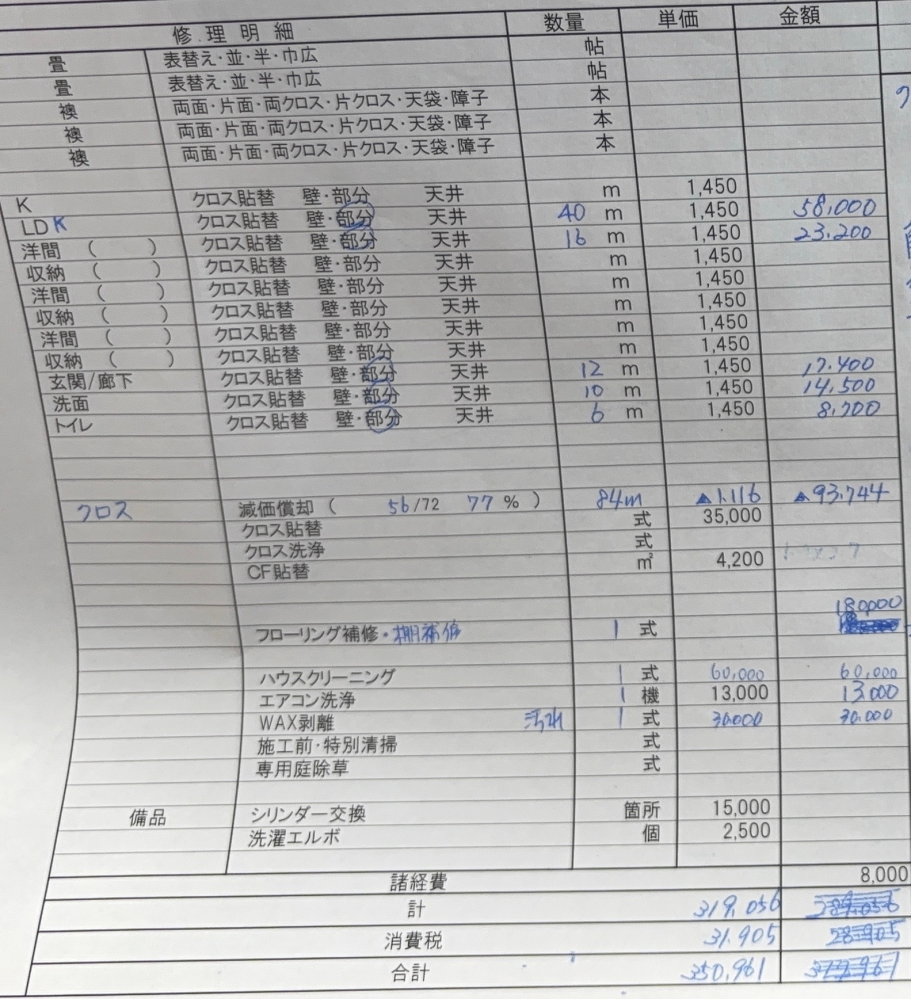 修理明細 数量 単価 金額
畳 表替え・並・半・巾広 帖
畳 表替え・並・半・巾広 帖
襖 両面・片面・両クロス・片クロス・天袋・障子 本
襖 両面・片面・両クロス・片クロス・天袋・障子 本
襖 両面・片面・両クロス・片クロス・天袋・障子 本
K クロス貼替 壁・部分 天井 m 1,450
LDK クロス貼替 壁・部分 天井 40 m 1,450 58,000
洋間 ( ) クロス貼替 壁・部分 天井 16 m 1,450 23,200
収納 ( ) クロス貼替 壁・部分 天井 m 1,450
洋間 ( ) クロス貼替 壁・部分 天井 m 1,450
収納 ( ) クロス貼替 壁・部分 天井 m 1,450
洋間 ( ) クロス貼替 壁・部分 天井 m 1,450
収納 ( ) クロス貼替 壁・部分 天井 m 1,450
玄関/廊下 クロス貼替 壁・部分 天井 12 m 1,450 17.400
洗面 クロス貼替 壁・部分 天井 10 m 1,450 14,500
トイレ クロス貼替 壁・部分 天井 6 m 1,450 8,700
クロス 減価償却 ( 56/72 77 % ) 84m ▲1.116 ▲93,744
クロス貼替 式 35,000
クロス洗浄 式
CF貼替 ㎡ 4,200
180,000
フローリング補修・棚補修 1 式
ハウスクリーニング 1 式 60,000 60,000
エアコン洗浄 1 機 13,000 13,000
WAX剥離 汚れ 1 式 30,000 30,000
施工前・特別清掃 式
専用庭除草 式
備品 シリンダー交換 箇所 15,000
洗濯エルボ 個 2,500
諸経費 8,000
計 319,056
消費税 31,905
合計 350,961